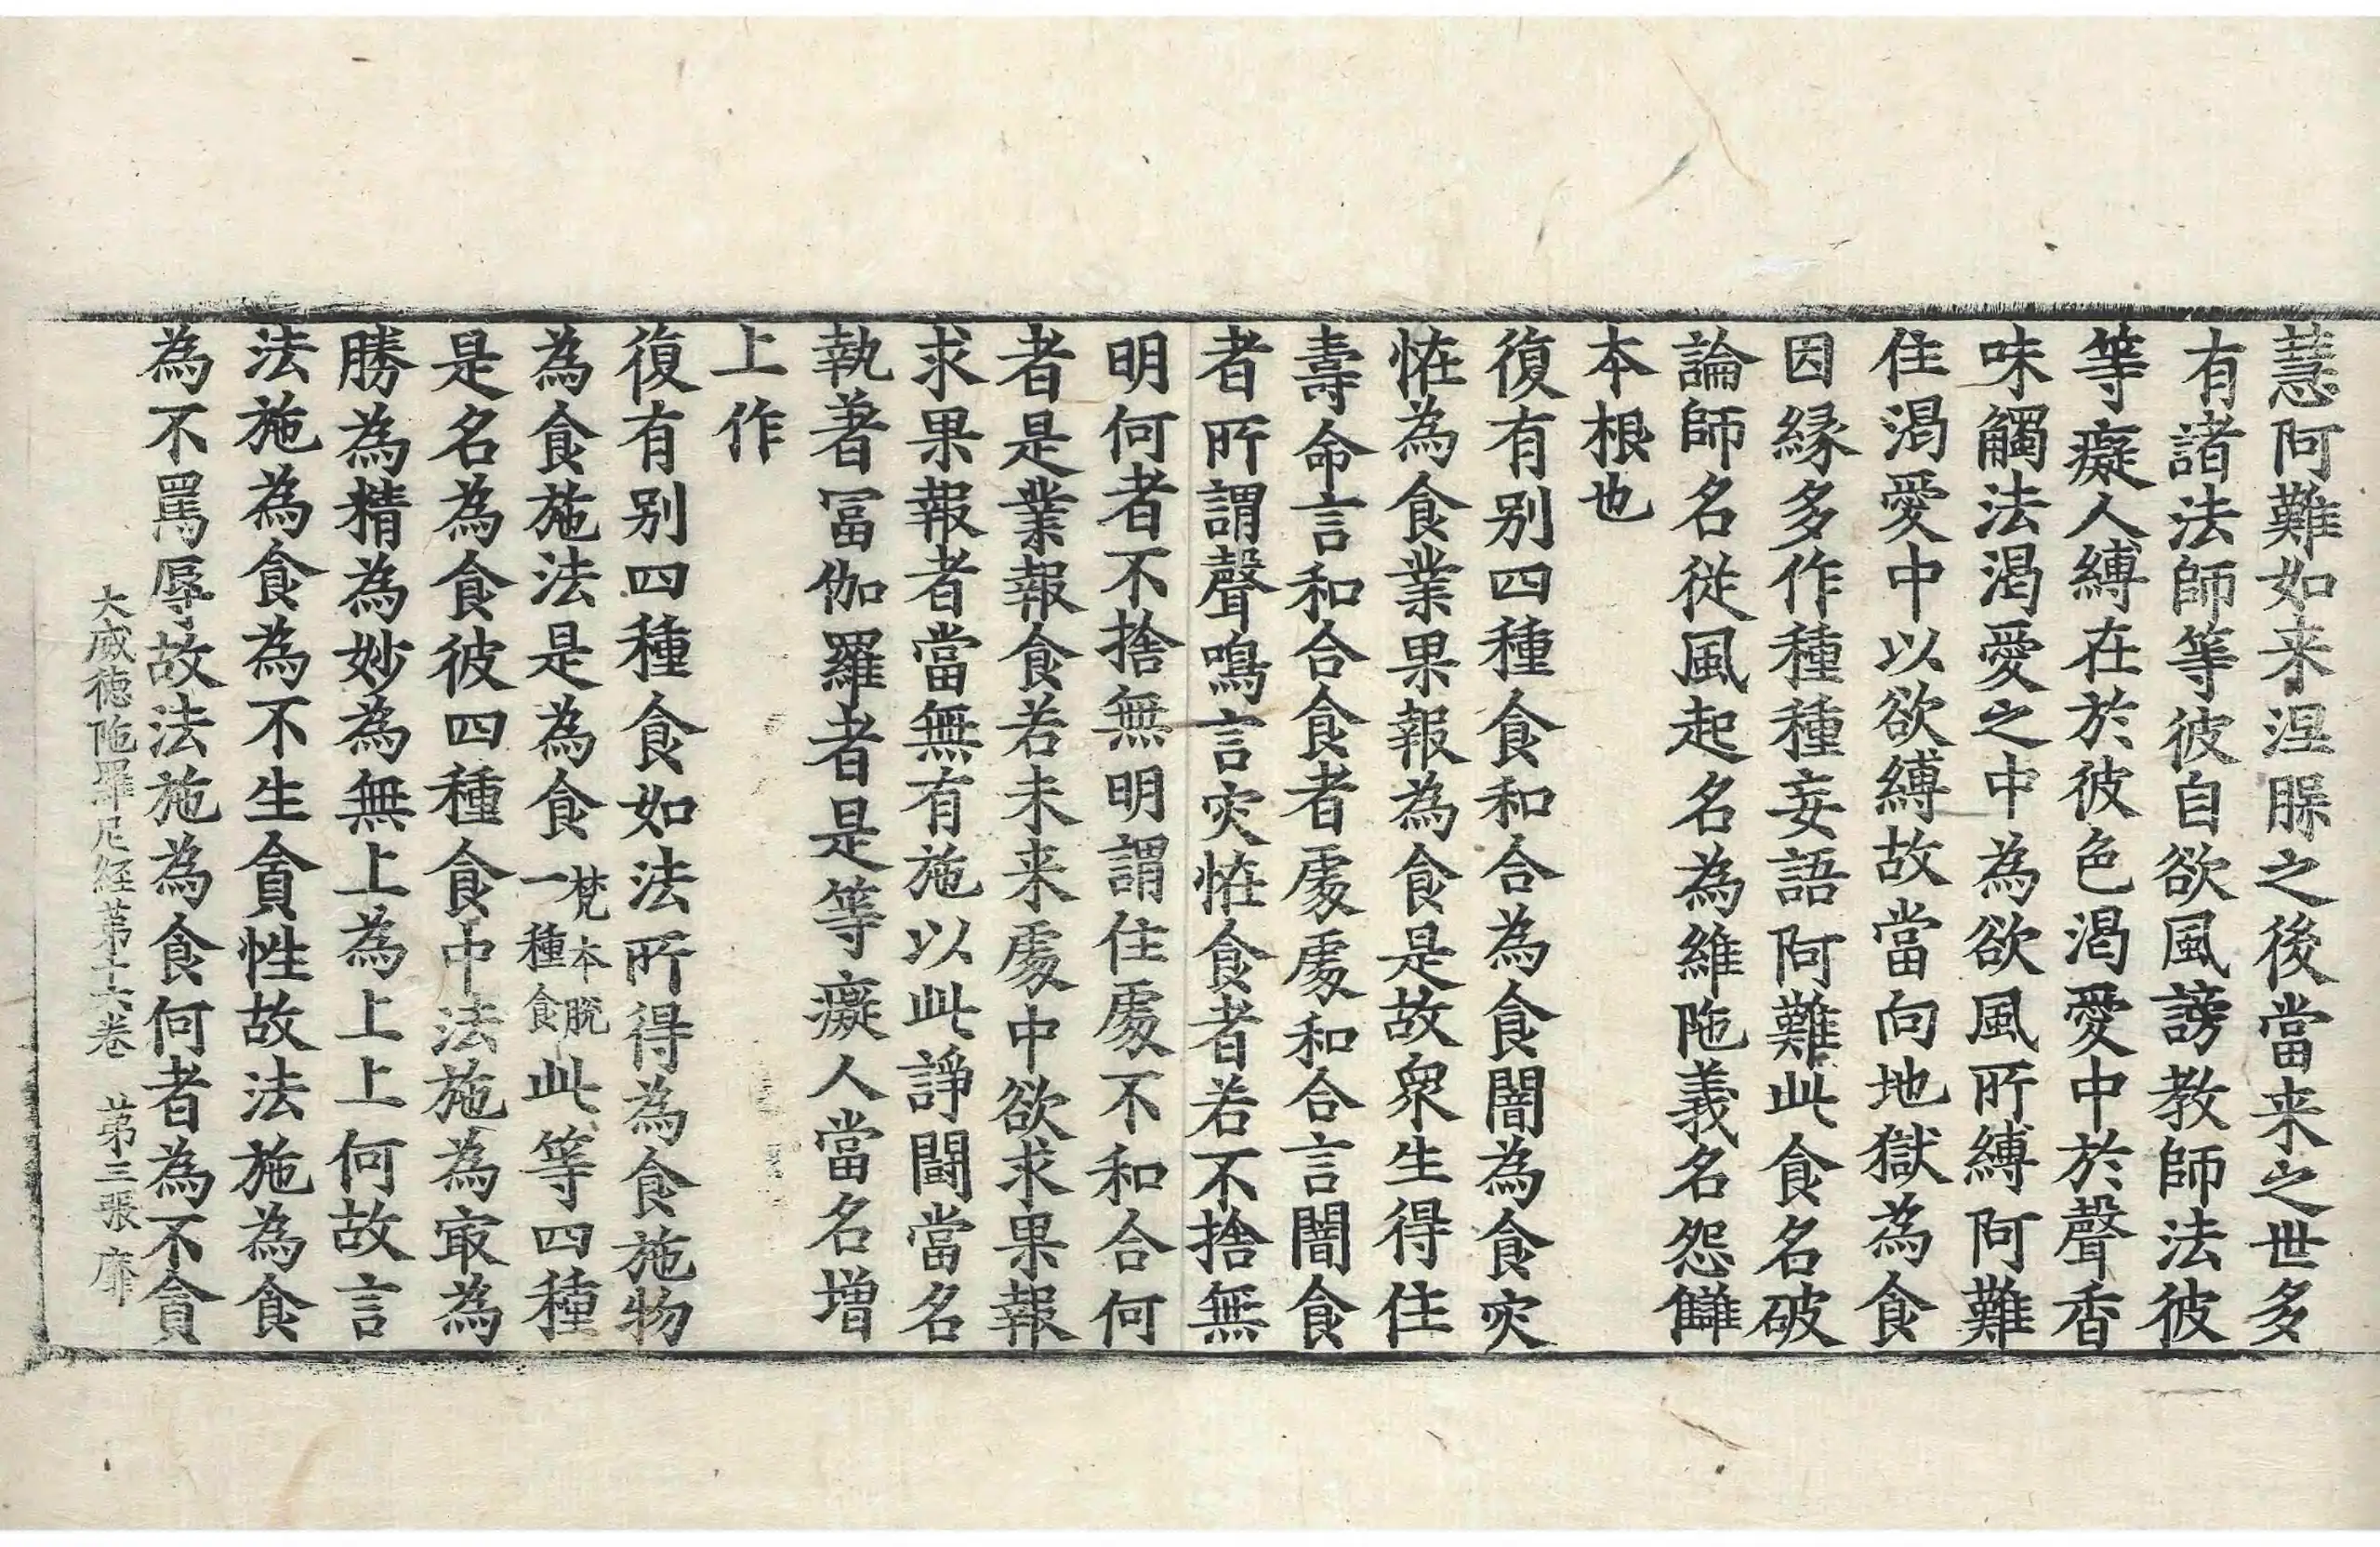 慧阿難如来涅脲之後當来之世多
有諸法師等彼自欲風謗教師法彼
等癡人縛在於彼色渴愛中於聲香
味觸法渴愛之中為欲風所縛阿難
住渴愛中以欲縛故當向地獄為食
因縁多作種種妄語阿難此食名破
論師名從風起名為維陁義名怨讎
本根也
復有别四種食和合為食闇為食灾
恠為食業果報為食是故衆生得住
壽命言和合食者處處和合言闇食
者所謂聲鳴言灾恠食者若不捨無
明何者不捨無明謂住處不和合何
者是業報食若未来處中欲求果報
求果報者當無有施以此諍鬪當名
執著冨伽羅者是等癡人當名增
上作
復有别四種食如法所得為食施物
為食施法是為食梵本脱一種食此等四種
是名為食彼四種食中法施為㝡為
勝為精為妙為無上為上上何故言
法施為食為不生貪性故法施為食
為不罵辱故法施為食何者為不貪
大威德陁羅尼經第十六卷 第三張 靡